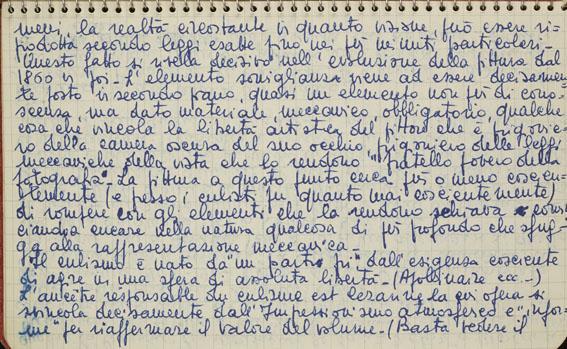 meni, la realtà circostante in quanto visione, può essere ri-
prodotta secondo leggi esatte fino nei più minuti particolari-
Questo fatto si rivela decisivo nell'evoluzione della pittura dal
1860 in poi- L'elemento somiglianza viene ad essere decisamen-
te posto in secondo piano, quasi un elemento non più di cono-
scenza, ma dato materiale, meccanico, obbligatorio, qualche
cosa che vincola la libertà artistica del pittore che è prigionie-
ro della camera oscura del suo occhio, prigioniero delle leggi
meccaniche della vista che lo rendono "fratello povero della
fotografia"- La pittura a questo punto cerca più o meno coscien-
temente (e spesso i cubisti in quanto mai coscientemente)
di rompere con gli elementi che la rendono schiava e
cercare nella natura qualcosa di più profondo che sfug-
ga alla rappresentazione meccanica-
Il cubismo è nato da "un parti pri" dall'esigenza cosciente
di agire in una sfera di assoluta libertà- (Apollinaire ecc.-)
L'ancêtre responsable du cubisme est Cezanne la cui opera si
svincola decisamente dall'Impressionismo atmosferico e "infor-
me" per riaffermare il valore del volume- (Basta vedere il